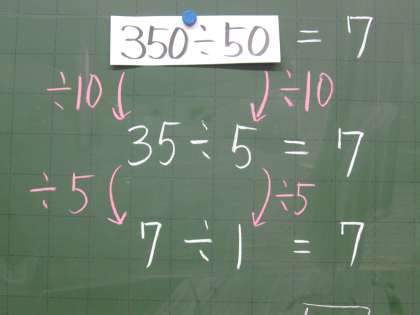 350÷50 = 7
÷10 ÷10
35÷5 = 7
÷5 ÷5
7÷1 = 7